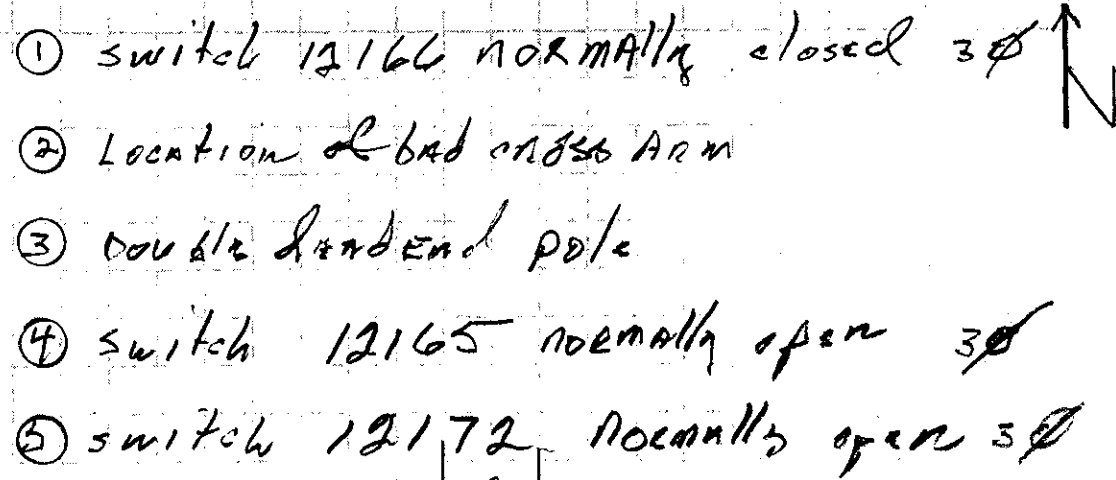 ① switch 12166 normally closed 3Ø N
② Location of bad cross Arm
③ Double deadend pole
④ switch 12165 normally open 3Ø
⑤ switch 12172 normally open 3Ø